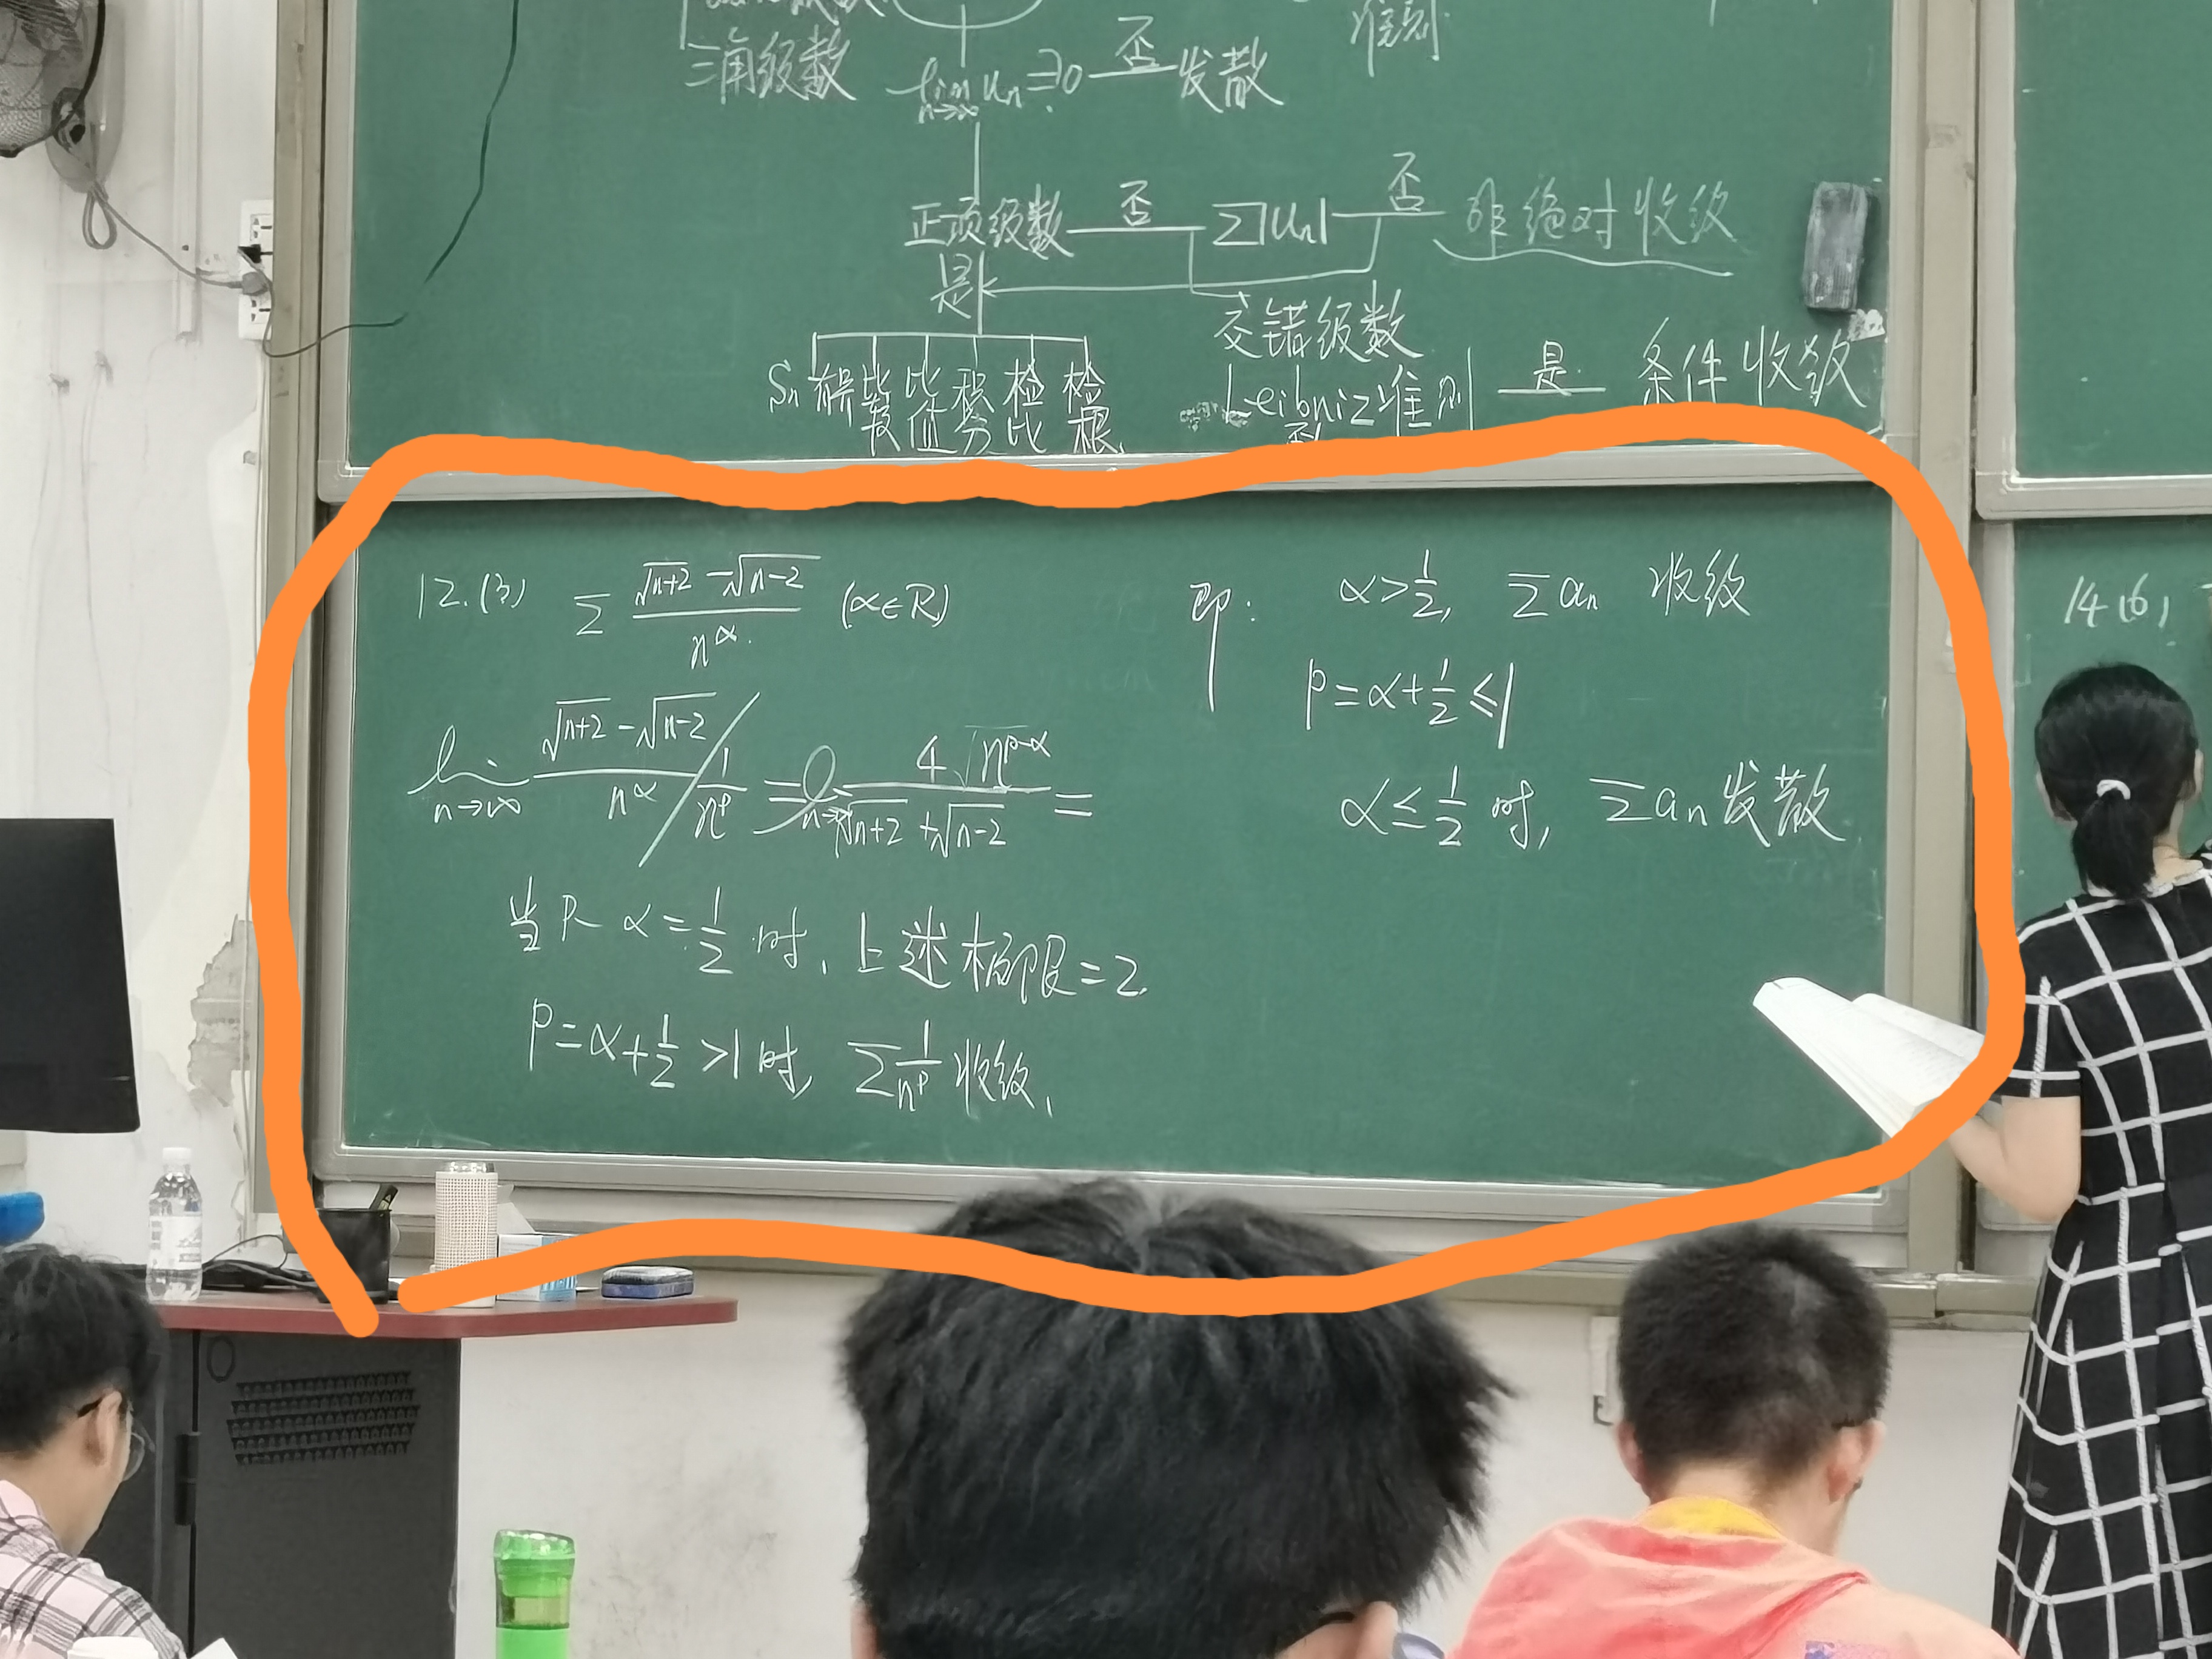 三角级数
lim n→∞ un ⇒ 0 否 发散
准则
正项级数 否 Σ|un| 否 非绝对收敛
是
交错级数
Sn 有界 比较 比值 积分 检比 检根
Leibniz准则 是 条件收敛
12.(3) Σ (√(n+2) - √(n-2)) / n^α (α∈R)
lim n→∞ (√(n+2) - √(n-2)) / n^α / (1/n^p) = lim n→∞ 4 n^(p-α) / (√(n+2) + √(n-2)) =
当 p-α = 1/2 时, 上述极限 = 2.
p = α + 1/2 > 1 时, Σ 1/n^p 收敛,
即: α > 1/2, Σ an 收敛
p = α + 1/2 ≤ 1
α ≤ 1/2 时, Σ an 发散
14(6)